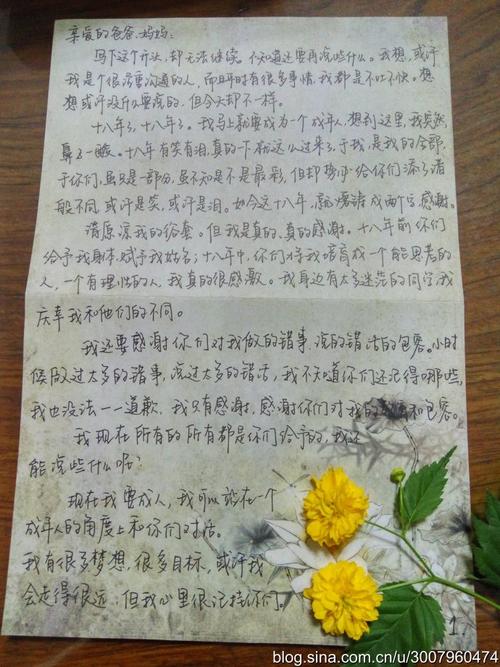 亲爱的爸爸、妈妈：
写下这个开头，却无法继续。不知道还要再说些什么。我想，或许
我是个很需要沟通的人，而平时有很多事情，我都是不吐不快。想
想或许没什么要说的，但今天却不一样。
十八年了，十八年了。我马上就要成为一个成年人，想到这里，我突然
鼻子一酸。十八年有笑有泪，真的一下就这么过来了，于我，是我的全部，
于你们，虽只是一部分，虽不知是不是最彩，但却势必给你们添了诸
般不同，或许是笑，或许是泪。如今这十八年，就凝铸成两个字，感谢。
请原谅我的俗套。但我是真的、真的感谢。十八年前你们
给予我身体，赋予我姓名；十八年中，你们将我培育成一个能思考的
人，一个有理性的人，我真的很感激。我身边有太多迷茫的同学，我
庆幸我和他们的不同。
我还要感谢你们对我做的错事，说的错话的包容。小时
候做过太多的错事，说过太多的错话，我不知道你们还记得哪些，
我也没法一一道歉，我只有感谢，感谢你们对我的 和包容。
我现在所有的所有都是你们给予的，我还
能说些什么呢？
现在我要成人，我可以站在一个
成年人的角度上和你们对话。
我有很多梦想，很多目标，或许我
会走得很远，但我心里很记挂你们。
1.
blog.sina.com.cn/u/3007960474